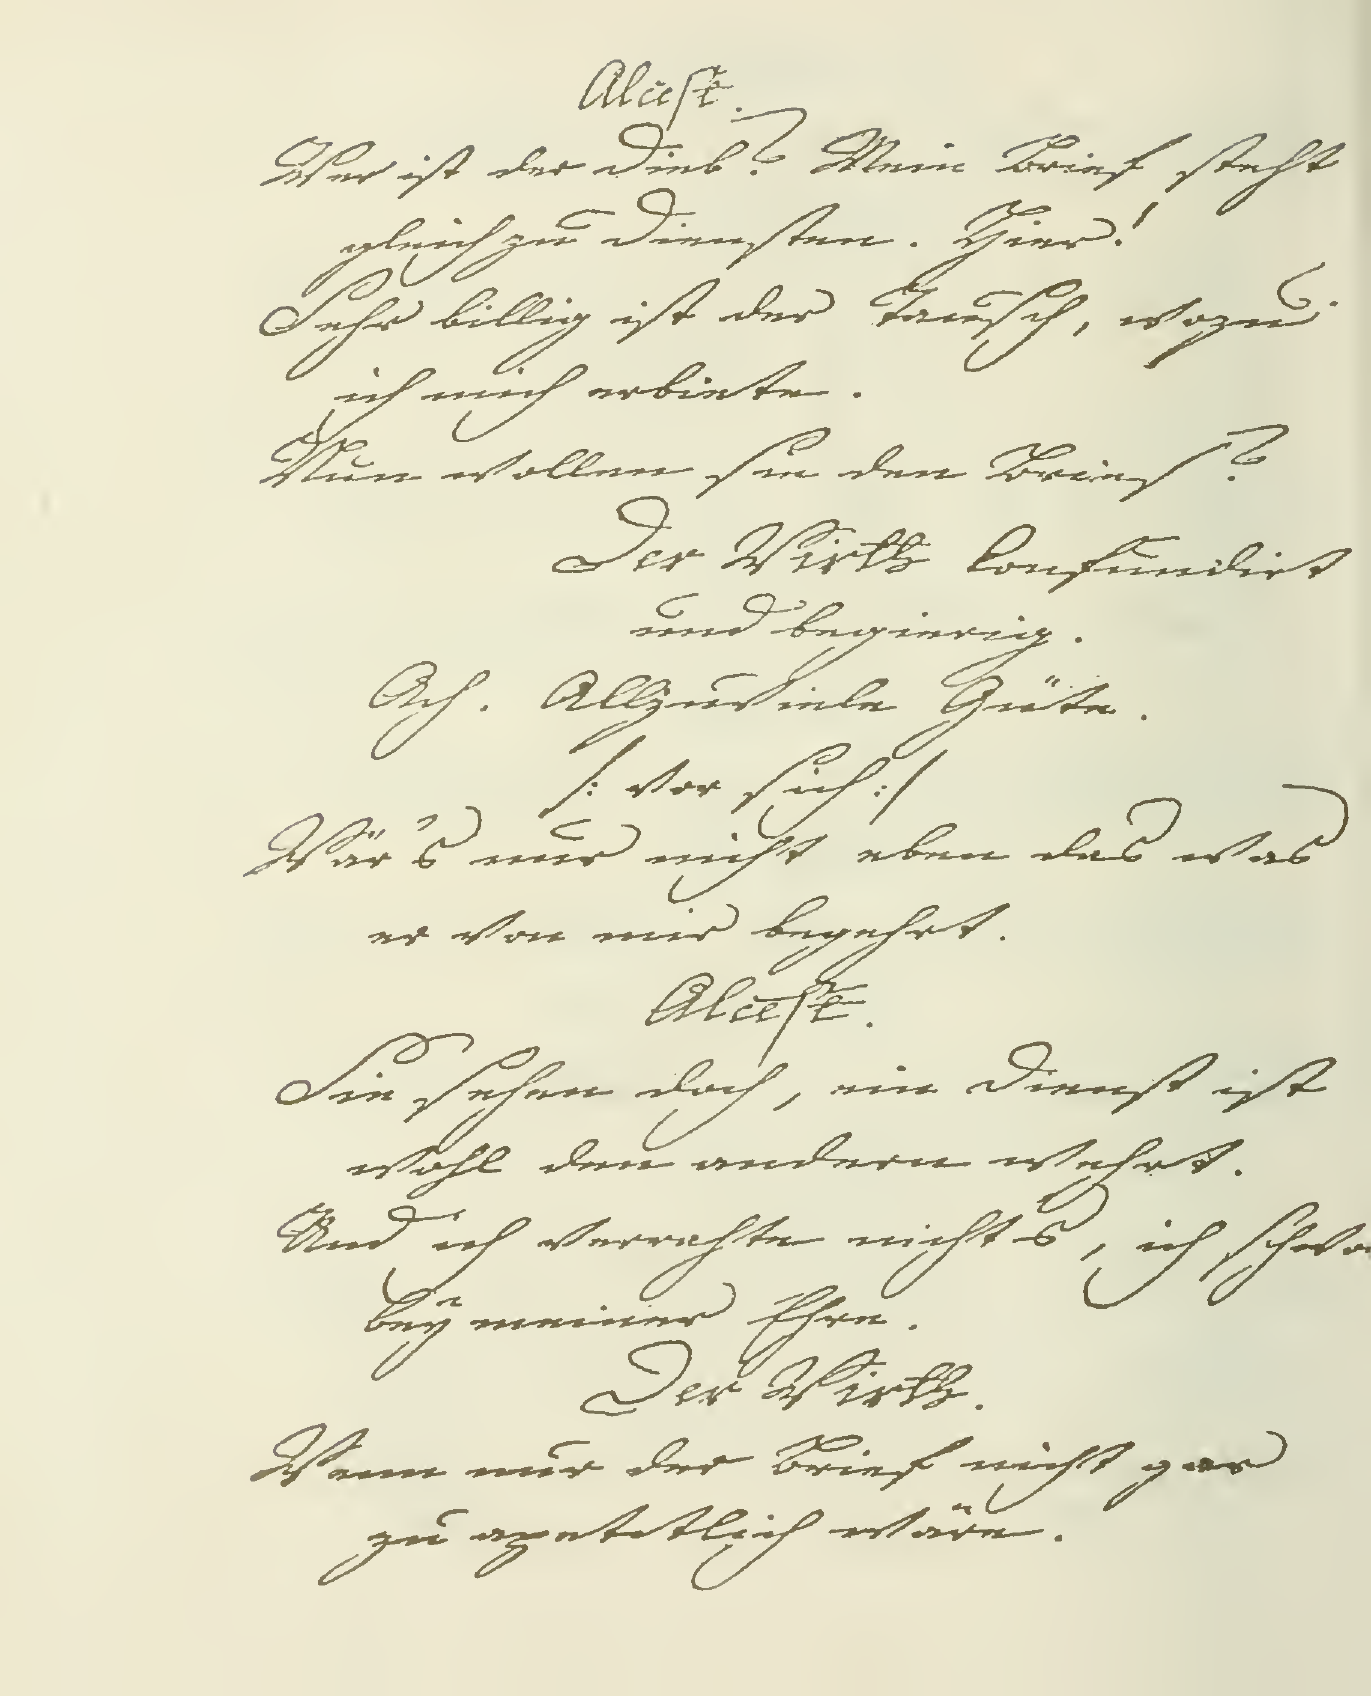 Alcest.
Wer ist der Dieb? Mein Brief steht
gleich zu Diensten. Hier!
Sehr billig ist der Tausch, wozu
ich mich erbiete.
Nun wollen sie den Brief?
Der Wirth konfundirt
und begierig.
Ach. Allzuviele Güte.
/: vor sich :/
Wär's nur nicht eben das was
er von mir begehrt.
Alceste.
Sie sehen doch, ein Dienst ist
wohl den andern wehrt.
Und ich verrahte nichts, ich schwö
bey meiner Ehre.
Der Wirth.
Wenn nur der Brief nicht gar
zu apetitlich wäre.